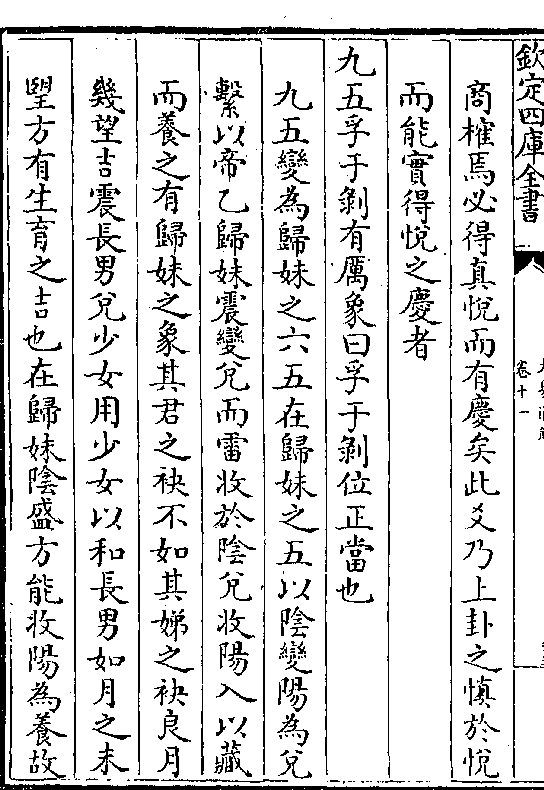 欽定四庫全書
卷十一
商榷焉必得真悅而有慶矣此爻乃上卦之慎於悅
而能實得悅之慶者
九五孚于剝有厲象曰孚于剝位正當也
九五變為歸妹之六五在歸妹之五以陰變陽為兌
繫以帝乙歸妹震變兌而雷收於陰兌收陽入以藏
而養之有歸妹之象其君之袂不如其娣之袂良月
幾望吉震長男兌少女用少女以和長男如月之未
朢方有生育之吉也在歸妹陰盛方能收陽為養故